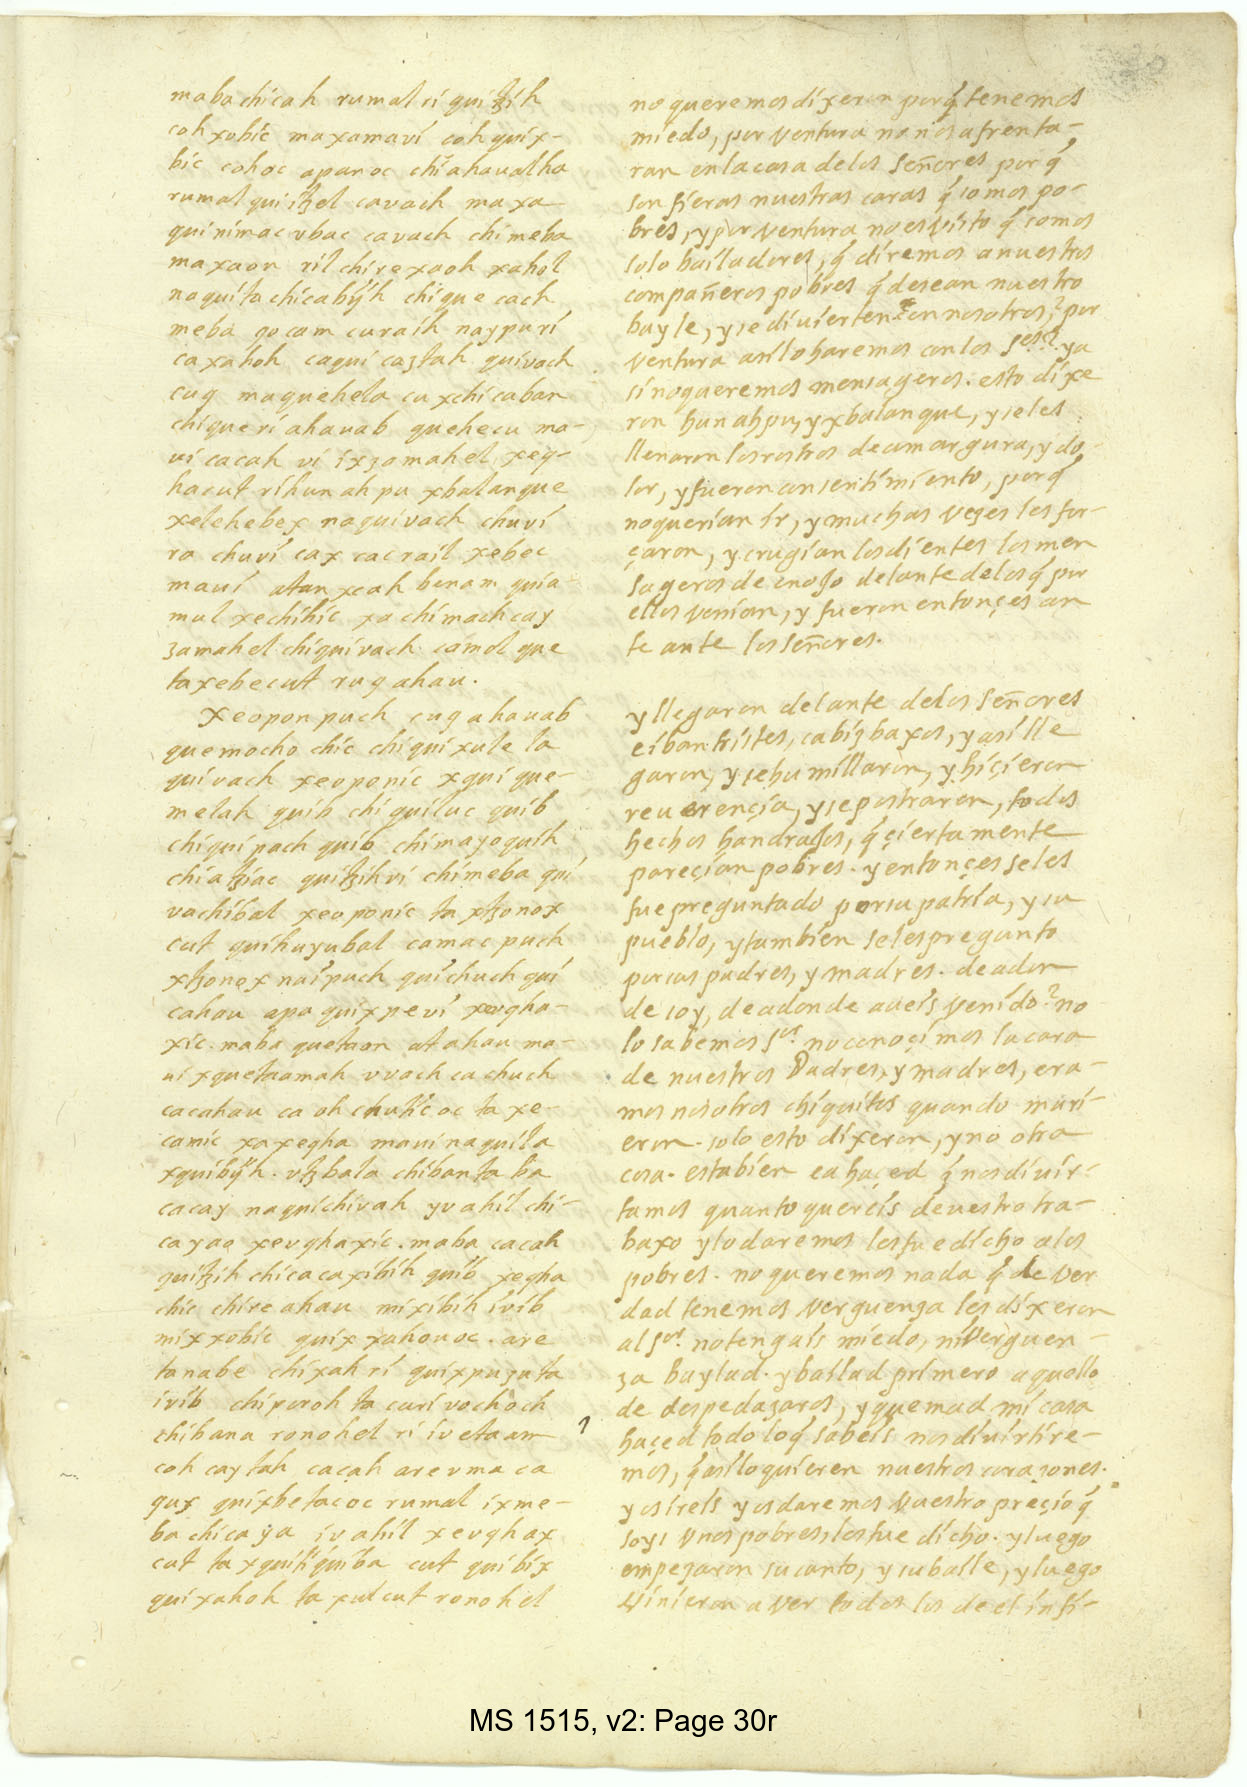 maba chicah rumal ri quitzih
coh xobic maxamaví coh quix-
bic cohoc apanoc chi ahaualha
rumal qui itzel cavach maxa-
quinimac vbac cavach chi meba
maxaon ril chirexaoh xahol
naquita chicabijh chique cach
meba qocam curaíh naypurí
caxahoh caqui caztah quivach
cuq maquehela cu xchicaban
chique rí ahauab quehecu ma-
ui cacah vi ix zamahel xeq-
hacut ríhun ahpu xbalanque
xelehebex naquivach chuví
ra chuví cax cacrail xebec
mauí atan xcah benam quia
mul xechihic xa chimachcay
zamahel chiquivach camol que
ta xebecut ruq ahau.
Xeopon puch cuq ahauab
quemocho chic chiqui xule la
quivach xeoponic xquique-
melah quib chiquiluc quib
chiqui pach quib chimayoquih
chi atziac quitzih vi chimeba qui
vachibal xeoponic ta xtzonox
cut quihuyubal camac puch
xtzonox naipuch quichuch qui
cahau apa quixpeví xeuqha-
xic. maba quetaon at ahau ma-
ui xquetaamah vvach cachuch
cacahau ca oh chutic oc ta xe-
camic xaxeqha mauinaquila
xquibijh. vtzbala chibanta ba
cacay naquichivah yvahil chi-
cayao xeuqhaxic. maba cacah
quitzih chicacaxibih quib xeqha
chic chire ahau mixibih ivib
mixxobic quix xahouoc. are
tanabe chixah rí quixpuzuta
ivib chiporoh ta curi vochoch
chibana ronohel ri ivetaam
coh caytah cacah areuma ca
qux quixbetacoc rumal ixme-
ba chicaya ivahil xeuqhax
cut ta xquitiquiba cut quibix
quixahoh ta xulcut ronohel
no queremos dixeron porq̃ tenemos
miedo, por ventura no nos afrenta-
ran enlacasa delos Señores porq̃
son fieras nuestras caras q̃ somos po-
bres, y por ventura no es visto q̃ somos
solo bailadores, q̃ diremos anuestros
compañeros pobres q̃ desean nuestro
bayle, y se divierten con nosotros? por
ventura asilo haremos con los Ses? ya
sinoqueremos mensageros. esto dixe
ron hunahpu, y xbalanque, y seles
llenaron los rostros deamargura, y do-
lor, y fueron con sentimiento, porq̃
noquerian ir, y muchas vezes les for-
çaron, y crugian los dientes los men
sageros de enojo delante delos q̃ por
ellos venian, y fueron entonçes an
te ante los Señores.
y llegaron delante delos Señores
e iban tristes, cabizbaxos, y asi lle
garon, y se humillaron, y hiçieron
reuerençia, y se postraron, todos
hechos handrajos, q̃ çiertamente
pareçian pobres. y entonçes seles
fue preguntado por su patria, y su
pueblo, y tambien seles pregunto
por sus padres, y madres. de adon
de soy, de adonde aueis venido? no
lo sabemos Sor. no conoçimos la cara
de nuestros Padres, y madres, era-
mos nosotros chiquitos quando muri-
eron. solo esto dixeron, y no otra
cosa. estabien ea haçed q̃ nos divir-
tamos quanto quereis de vuestro tra-
baxo y lo daremos les fue dicho a los
pobres. no queremos nada q̃ de ver
dad tenemos verguenza les dixeron
al Sor. no tengais miedo, ni verguen-
za baylad. y bailad primero aquello
de despedazaros, y quemad mi casa
haçed todo lo q̃ sabeis nos divirtire-
mos, q̃ asi lo quieren nuestros corazones.
y os ireis y os daremos vuestro preçio q̃
soys vnos pobres, les fue dicho. y luego
empezaron su canto, y su baile, y luego
vinieron a ver todos los de el infi-
MS 1515, v2: Page 30r